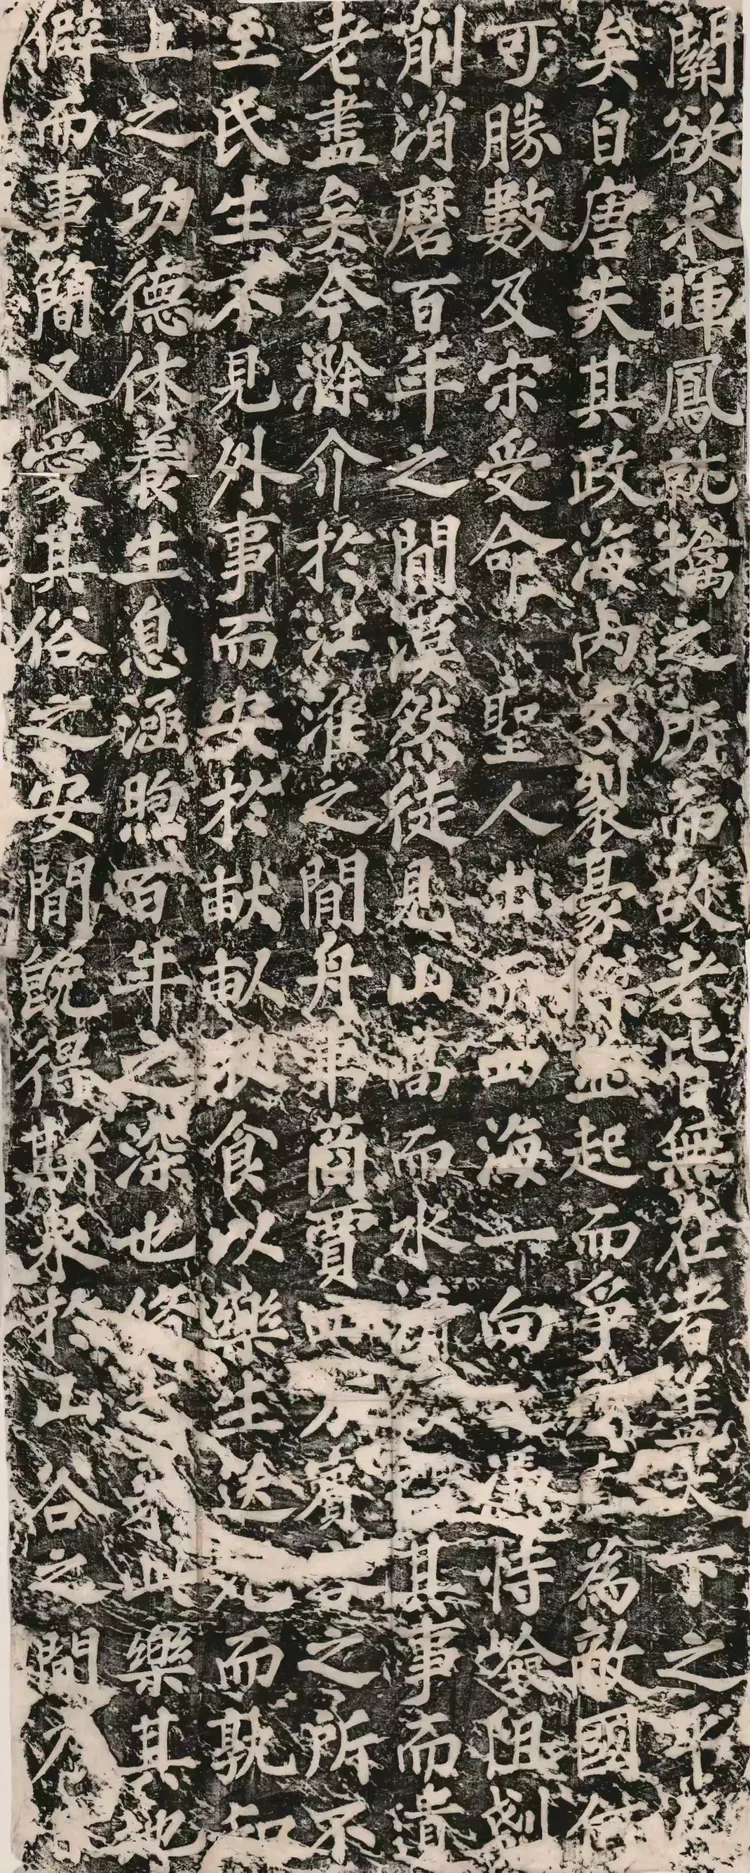 關欲求暉鳳就擒之所而故老皆無在者蓋天下之平
矣自唐失其政海內分裂豪傑並起而爭所在為敵國何
可勝數及宋受命聖人出而四海一向之憑恃險阻剗
削消磨百年之間漠然徒見山高而水清欲問其事而遺
老盡矣今滁介於江淮之間舟車商賈四方賓客之所不
至民生不見外事而安於畎畝衣食以樂生送死而孰知
上之功德休養生息涵煦百年之深也脩之來此樂其地
僻而事簡又愛其俗之安閒既得斯泉於山谷之間乃